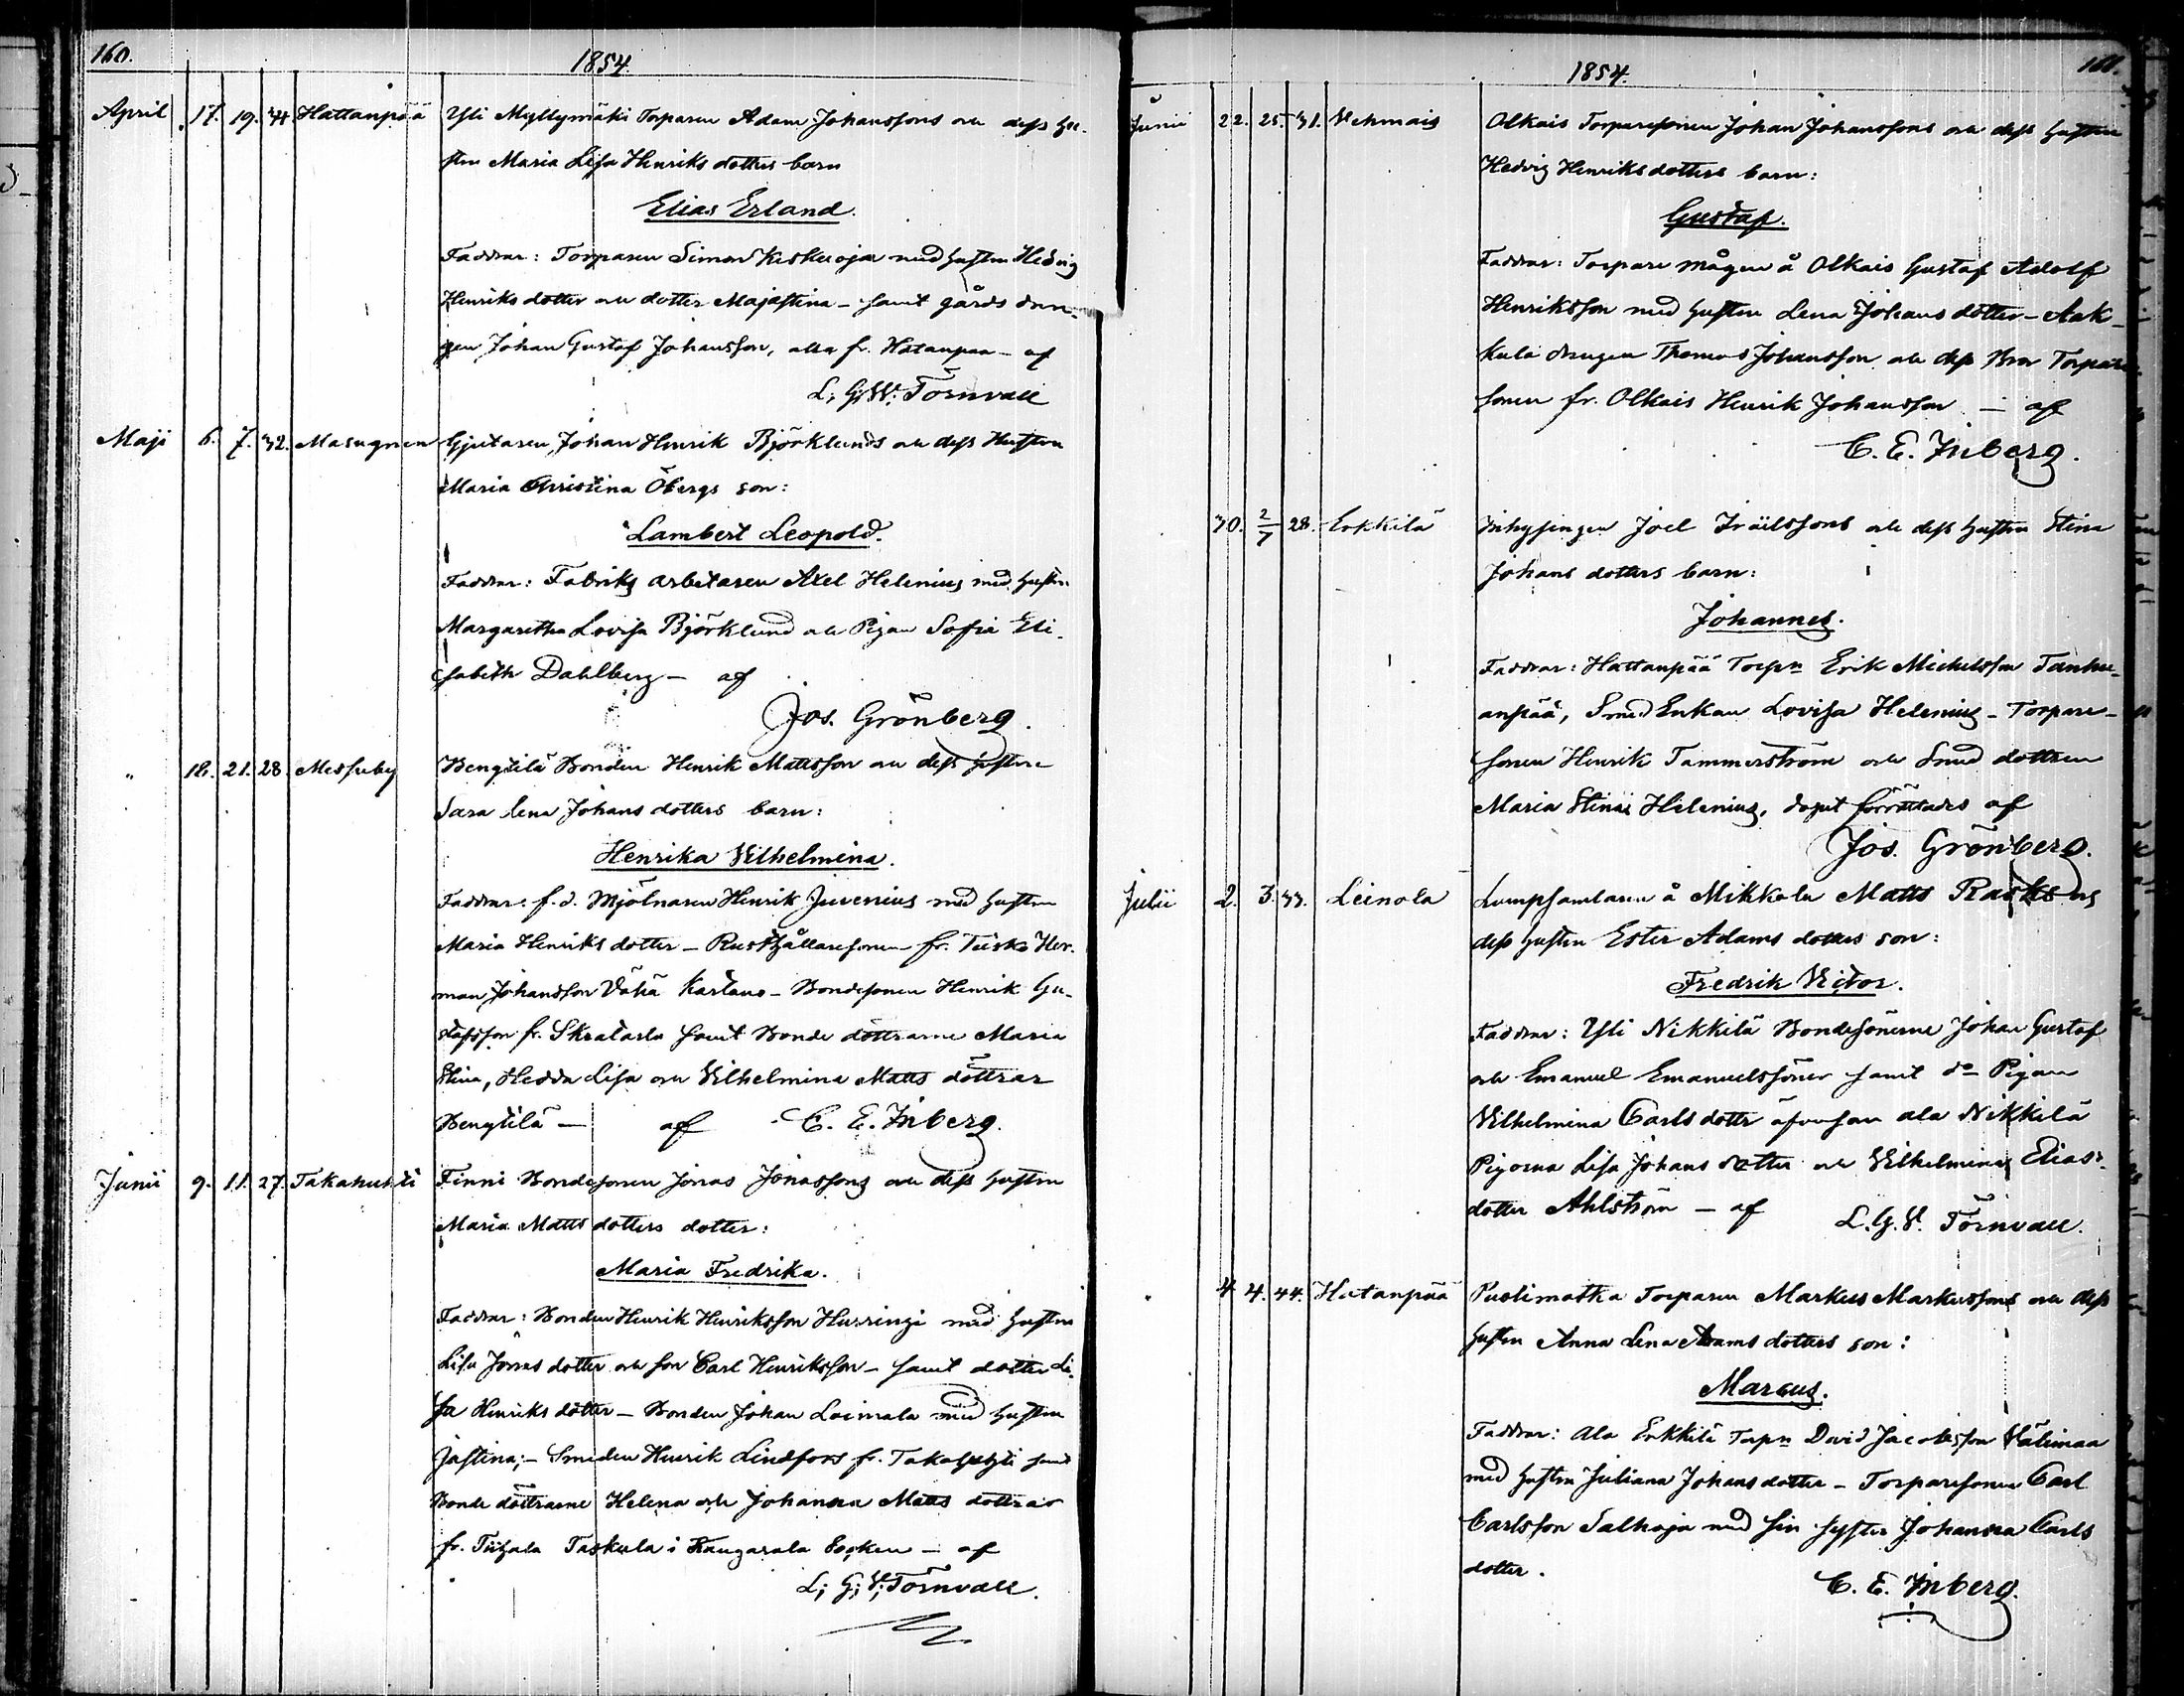 160.
1854.
April 17. 19. 34 Hattanpää Yli Myllymäki Torparen Adam Johanssons och dess Hu-
strn Maria Lisa Henriks dotters barn
Elias Erland.
Faddrar: Torparen Simon Keskuoja med hustrn Hedvig
Henriks dotter och dotter Majastina – samt gårds drän-
gen Johan Gustaf Johansson, alla fr. Hatanpää – af
L. G. W. Törnvall
Maji 6. 7. 32. Masugnen Gjutaren Johan Henrik Björklunds och dess Hustru
Maria Christina Öbergs son:
Lambert Leopold.
Faddrar: Fabriks arbetaren Axel Helenius med hustru
Margaretha Lovisa Björklund och Pigan Sofia Eli-
sabeth Dahlberg – af
Jos. Grönberg.
" 18. 21. 28. Messuby Bengtilä Bonden Henrik Mattsson och dess hustru
Sara Lena Johans dotters barn:
Henrika Vilhelmina.
Faddrar: f.d. Mjölnaren Henrik Juvenius med hustru
Maria Henriks dotter – Rusthållaresonen fr. Tiiska Her-
man Johansson Vähä Kartano – Bondesonen Henrik Gu-
stafsson fr. Skratarla samt Bonde döttrarne Maria
Stina, Hedda Lisa och Vilhelmina Matts döttrar
Bengtilä – af C. E. Inberg.
Junii 9. 11. 27. Takahuhti Finni Bondesonen Jonas Jonassons och dess hustru
Maria Matts dotters dotter:
Maria Fredrika.
Faddrar: Bonden Henrik Henriksson Hurringi med hustru
Lisa Jonas dotter och son Carl Henriksson – samt dotter Li-
sa Henriks dotter – Bonden Johan Loimala med hustru
Justina; – Smeden Henrik Lindfors fr. Takahuhti samt
Bonde döttrarne Helena och Johanna Matts dottrar
fr. Tiihala Taskula i Kangasala Socken – af
L. G. V. Törnvall.
161.
1854.
Junii 22. 25. 31. Vehmais Olkais Torparesonen Johan Johanssons och dess hustru
Hedvig Henriksdotters barn:
Gustaf.
Faddrar: Torpare mågen å Olkais Gustaf Adolf
Henriksson med hustru Lena Johans dotter – Aak-
kula drengen Thomas Johansson och dess Bror Torpare
sonen fr. Olkais Henrik Johansson – af
C. E. Inberg.
30. 2/7 28. Erkkilä Inhysingen Joel Isräilssons och dess hustru Stina
Johans dotters barn:
Johannes.
Faddrar: Hattanpää Torpn Erik Michelsson Tanhu-
anpää, Smed Enkan Lovisa Helenius – Torpare-
sonen Henrik Tammerström och Smed dottren
Maria Stina Helenius, dopet förrättades af
Jos. Grönberg.
Julii 2. 3. 33. Leinola Lumpsamlaren å Mikkola Matts Rasks och
dess hustru Ester Adams dotters son:
Fredrik Victor.
Faddrar: Yli Nikkilä Bondesönerne Johan Gustaf
och Emanuel Emanuelssöner samt do Pigan
Vilhelmina Carls dotter äfvensom ala Nikkilä
Pigorna Lisa Johans dotter och Vilhelmina Elias-
dotter Ahlström – af L. G. V. Törnvall.
4 4. 44. Hatanpää Puolimatka Torparen Markus Markussons och dess
hustru Anna Lena Adams dotters son:
Marcus.
Faddrar: Ala Erkkilä Torpn David Jacobsson Välimaa
med hustru Juliana Johans dotter – Torparesonen Carl
Carlsson Salhoja med sin syster Johanna Carls
dotter.
C. E. Inberg.